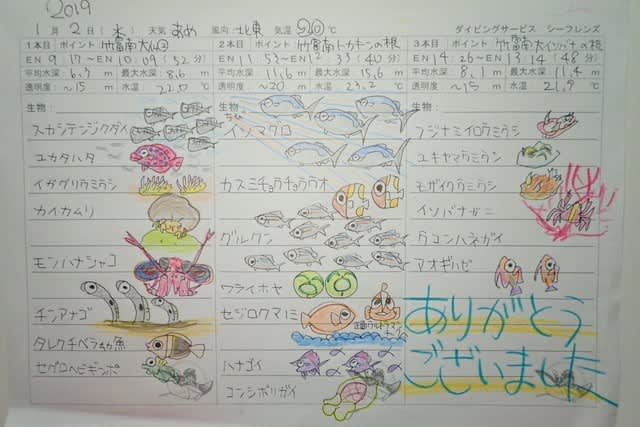 2019
1月2日(水) 天気 あめ 風向 北東 気温 20℃ ダイビングサービス シーフレンズ
1本目 ポイント 竹富南大仏②
EN 9:17〜EN 10:09 (52分)
平均水深: 6.3m 最大水深: 8.6m
透明度: 〜15m 水温: 22.0℃
生物:
スカシテンジクダイ
ユカタハタ
イガグリウミウシ
カイカムリ
モンハナシャコ
チンアナゴ
タレクチベラ幼魚
セグロヘビギンポ
2本目 ポイント 竹富南トカキンの根
EN 11:53〜EN 12:33 (40分)
平均水深: 11.6m 最大水深: 15.6m
透明度: 〜20m 水温: 23.2℃
生物:
イソマグロ
カスミチョウチョウウオ
グルクン
ワライボヤ
セジロクマノミ
ハナゴイ
コンシボリガイ
3本目 ポイント 竹富南大イソバナの根
EN 14:26〜EN 13:14 (48分)
平均水深: 8.1m 最大水深: 11.4m
透明度: 〜15m 水温: 21.9℃
生物:
フジナミイロウミウシ
ユキヤマウミウシ
モザイクウミウシ
イソバナガニ
ウコンハネガイ
アオギハゼ
ありがとう
ございました